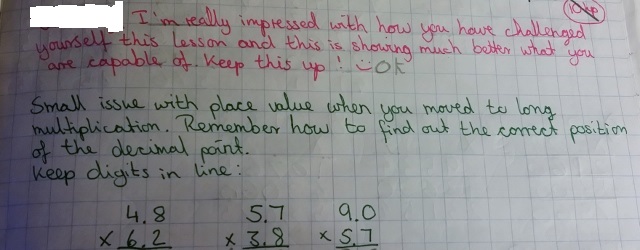 10
I'm really impressed with how you have challenged
yourself this lesson and this is showing much better what you
are capable of. Keep this up! OK
Small issue with place value when you moved to long
multiplication. Remember how to find out the correct position
of the decimal point.
Keep digits in line:
4.8 5.7 9.0
× 6.2 × 3.8 × 5.7